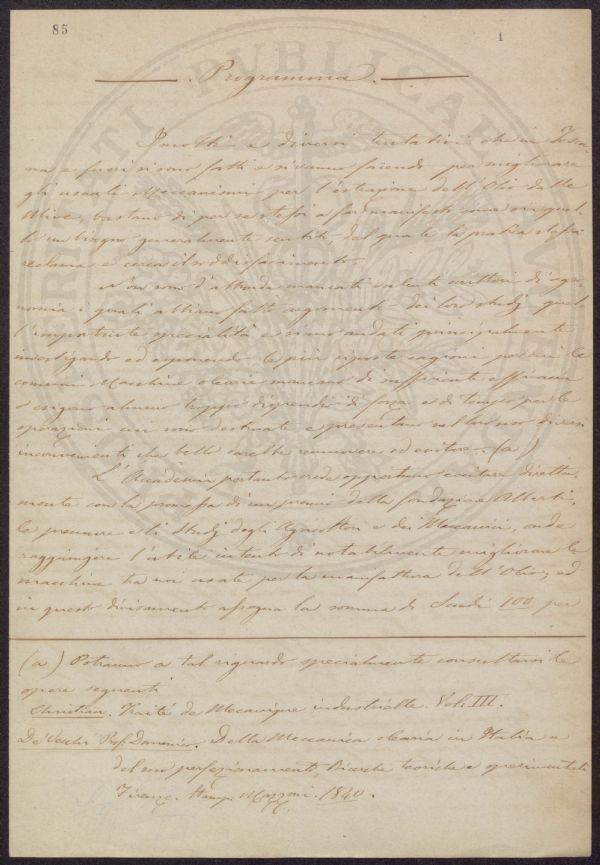 85
1
Programma.
I molti e diversi tentativi che in Tosca-
na e fuori si sono fatti e si vanno facendo per migliorare
gli usuali Meccanismi per l'estrazione dell'Olio dalle
Ulive, bastano di per se stessi a far manifesto come siagua-
le un bisogno generalmente sentito, del quale la pratica stessa
reclama e cerca il soddisfacimento.
Non sono d'altronde mancati valenti scrittori di agro-
nomia i quali abbian fatto argomento dei loro studj quel
l'importante specialità e siano andati principalmente
investigando ed esponendo le più riposte cagioni per cui le
comuni Macchine olearie mancano di sufficiente efficacia
o esigono almeno troppo dispendio di forza e di tempo per le
operazioni cui sono destinate e presentano nell'uso diversi
inconvenienti che bello sarebbe rimuovere od evitare. (a)
L'Accademia pertanto crede opportuno eccitare diretta-
mente con la promessa di un premio della fondazione Alberti,
le premure e li studj degli Agricoltori e dei Meccanici, onde
raggiungere l'utile intento di notabilmente migliorare le
macchine tra noi usate per la manifattura dell'Olio; ed
in questo divisamento assegna la somma di Scudi 100 per
(a) Potranno a tal riguardo specialmente consultarsi le
opere seguenti
Christian. Traité de Mecanique industrielle. Vol. III.
De' Vecchi Prof. Domenico. Della Meccanica olearia in Italia e
del suo perfezionamento, Ricerche teoriche e sperimentali
Firenze. Stamp. Mazzoni. 1840.